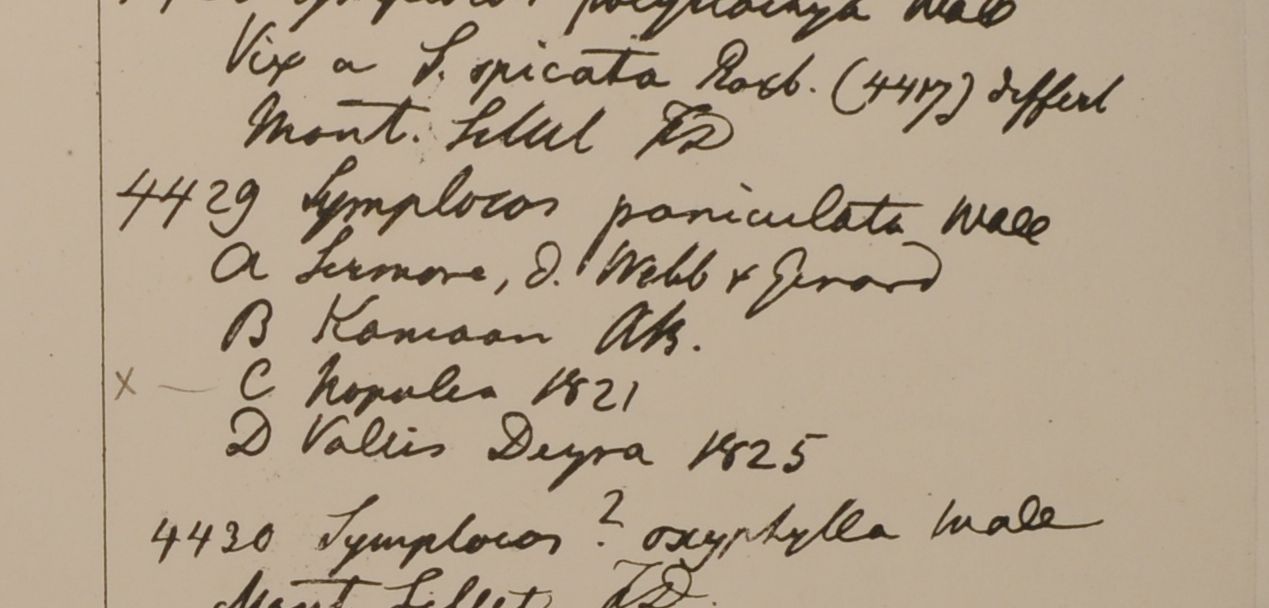 Symplocos polystachya Wall
Vix a S. spicata Roxb. (4417) differt
Mont. Sillet FD
4429 Symplocos paniculata Wall
A Sirmore, d. Webb & Gerard
B Kamaon RB.
C Napalia 1821
D Vallis Deyra 1825
4430 Symplocos ? oxyphylla Wall
Mont Sillet FD.